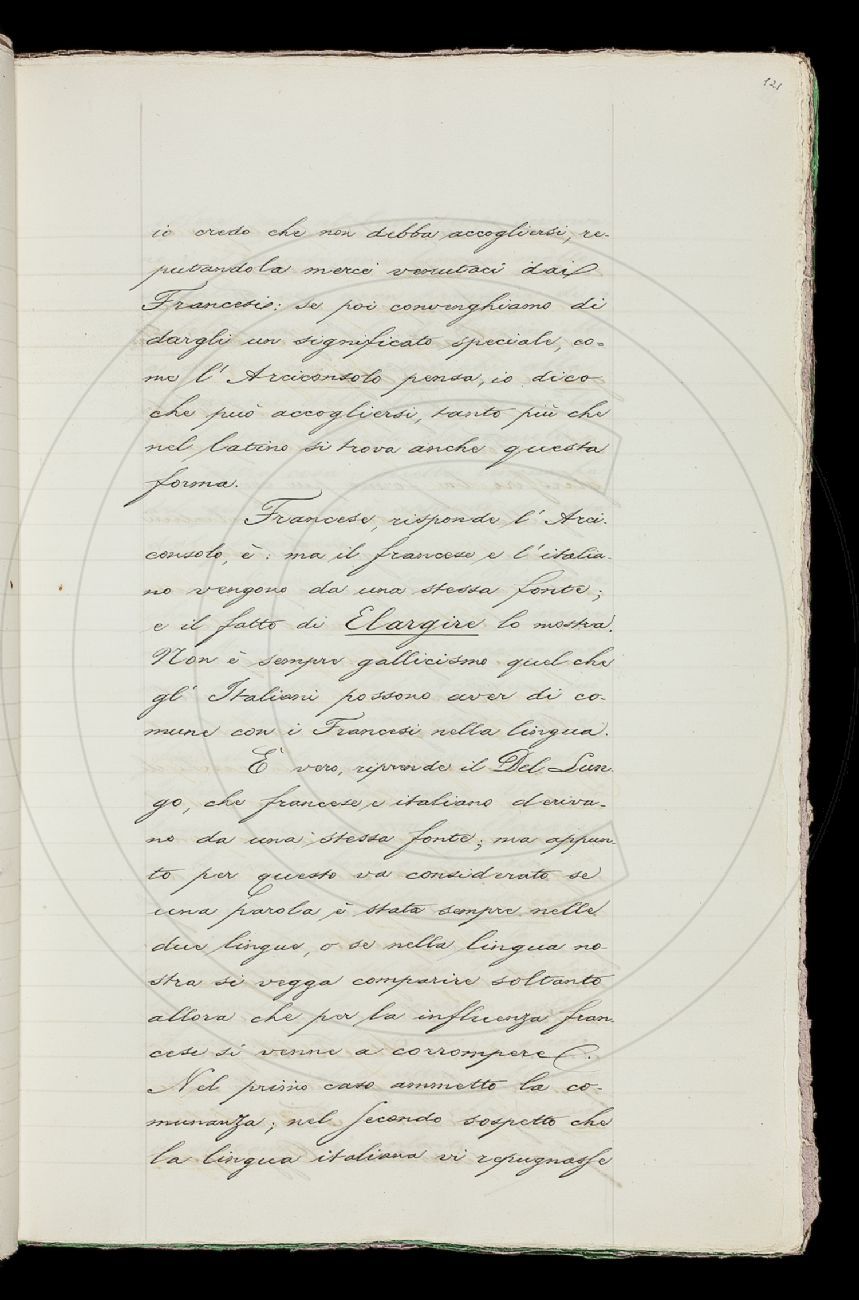 121
io credo che non debba accogliersi, re-
putandola merce venutaci dai
Francesi: se poi convenghiamo di
dargli un significato speciale, co-
me l'Arciconsolo pensa, io dico
che può accogliersi, tanto più che
nel latino si trova anche questa
forma.
Francese, risponde l'Arci-
consolo, è: ma il francese e l'italia-
no vengono da una stessa fonte;
e il fatto di Elargire lo mostra.
Non è sempre gallicismo quel che
gl'Italiani possono aver di co-
mune con i Francesi nella lingua.
È vero, riprende il Del Lun-
go, che francese e italiano deriva-
no da una stessa fonte; ma appun-
to per questo va considerato se
una parola è stata sempre nelle
due lingue, o se nella lingua no-
stra si vegga comparire soltanto
allora che per la influenza fran-
cese si venne a corrompere.
Nel primo caso ammetto la co-
munanza; nel secondo sospetto che
la lingua italiana vi repugnasse